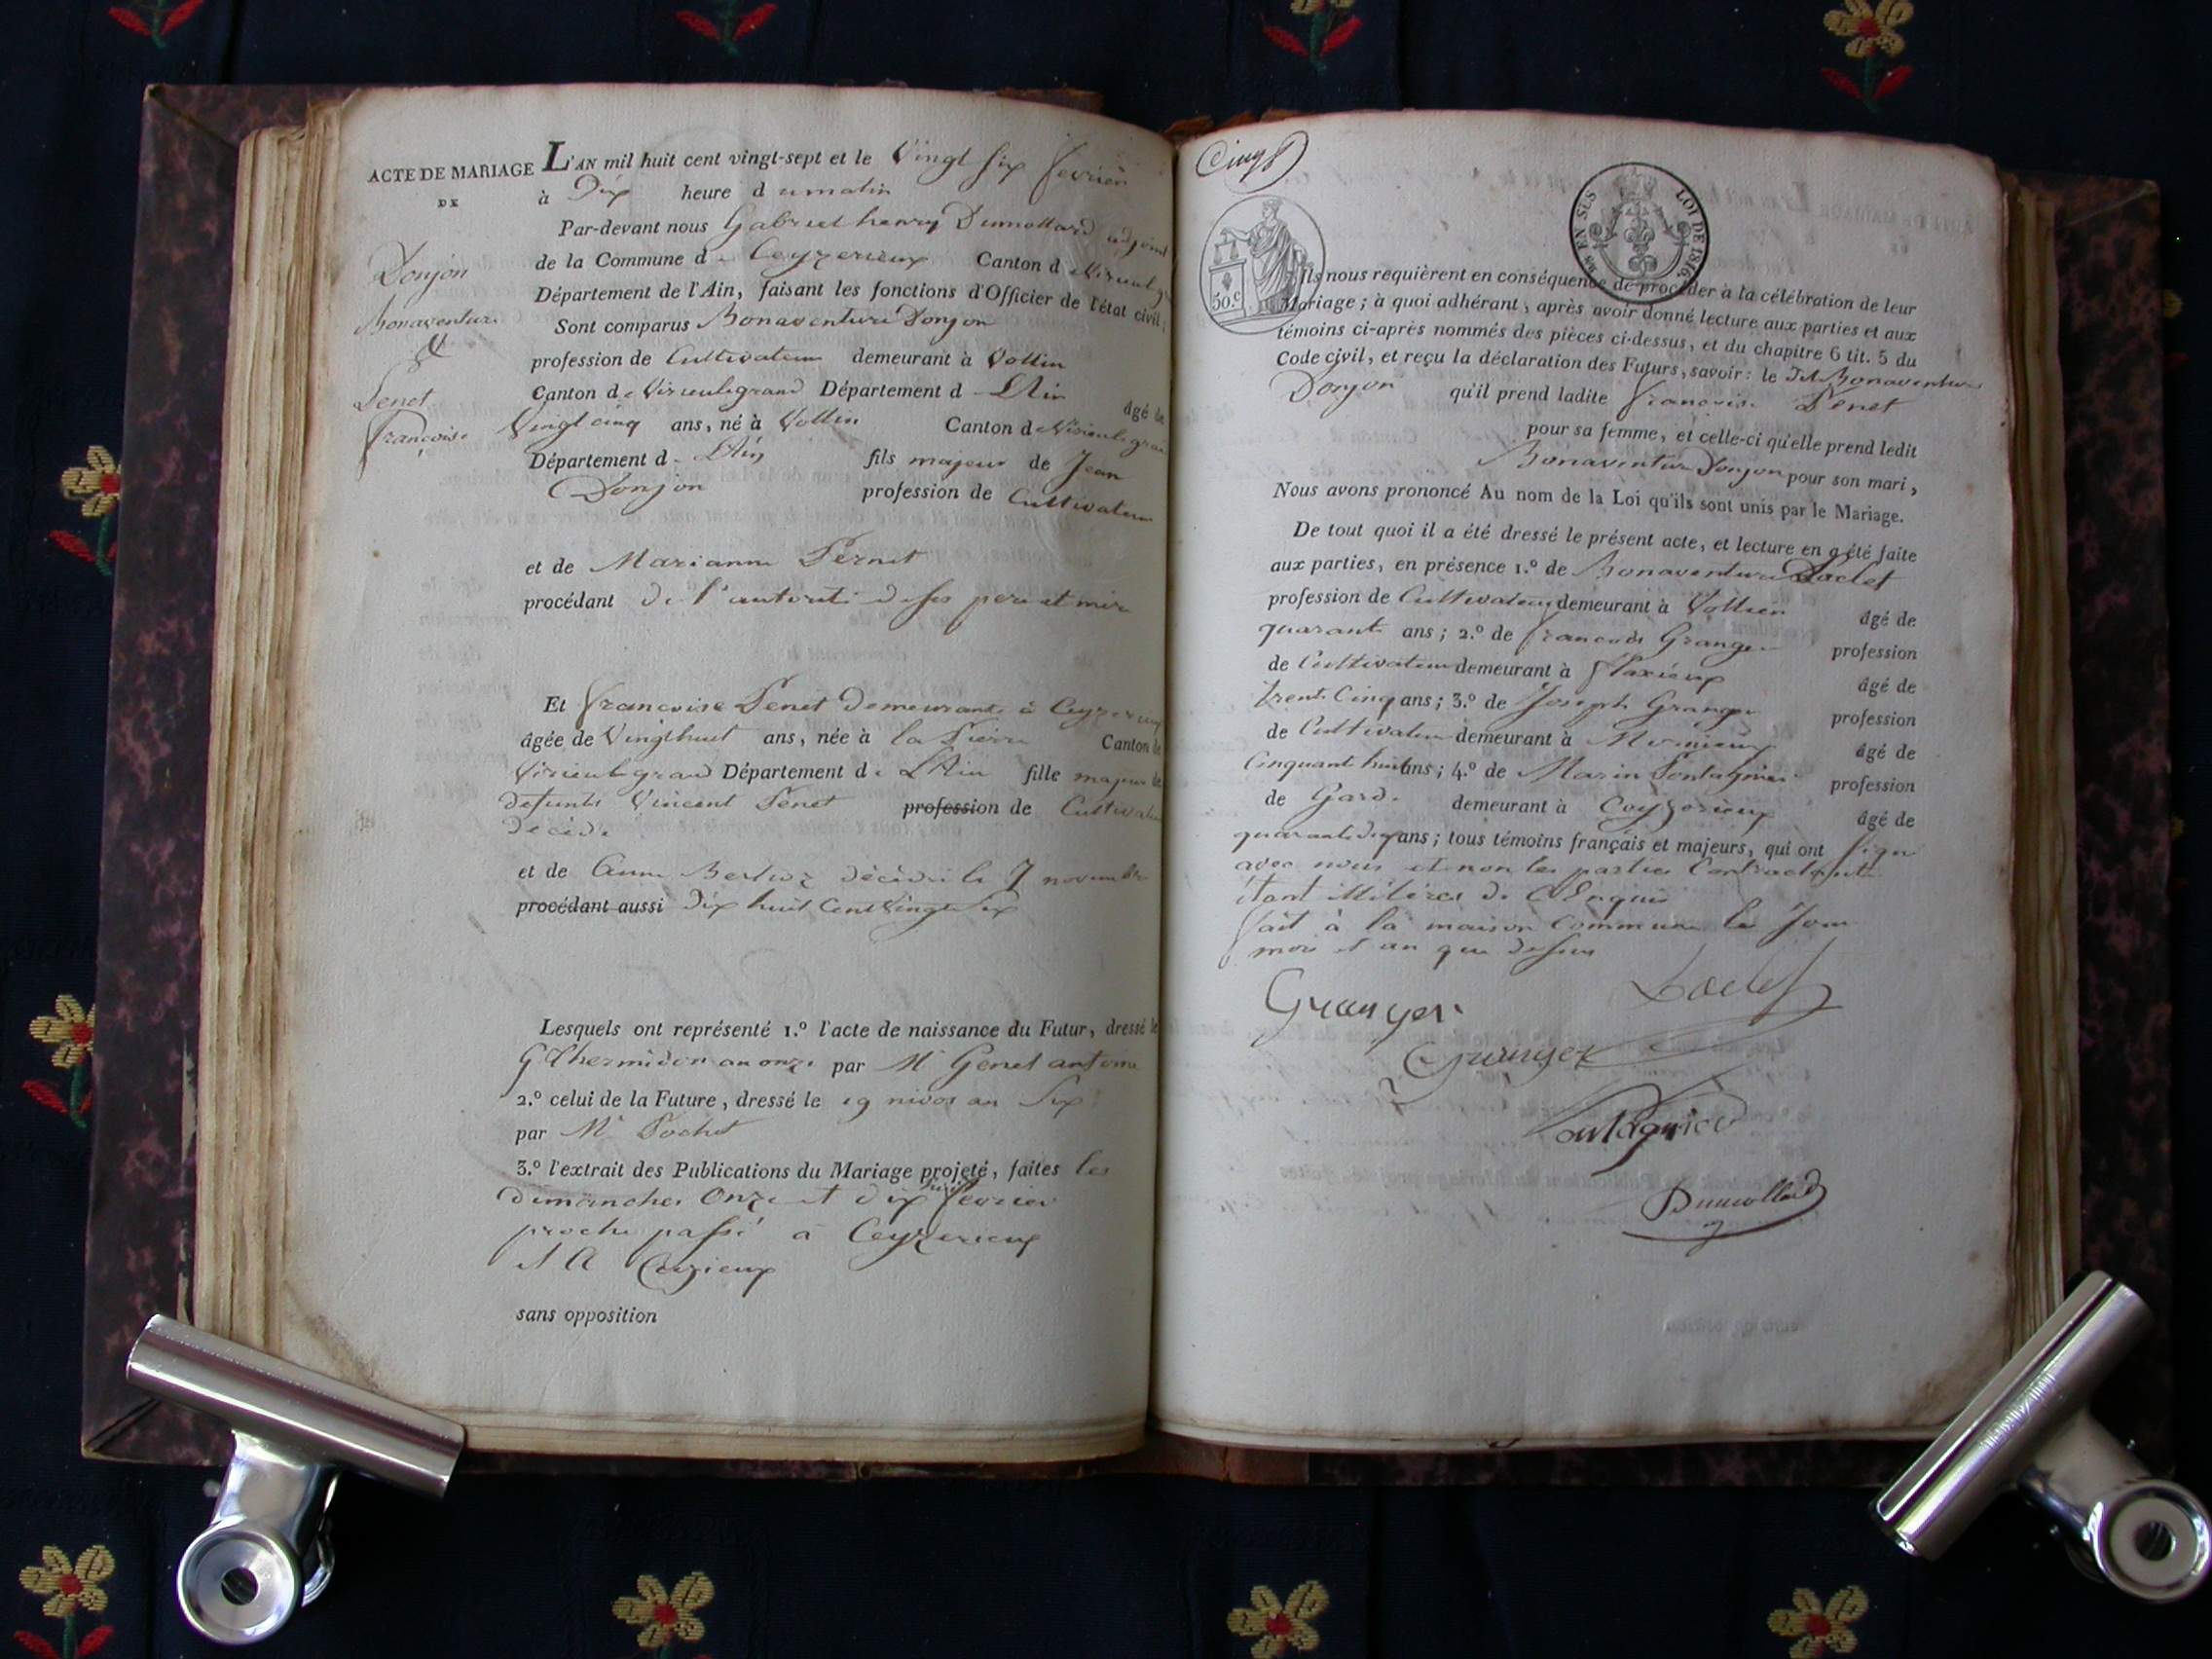 ACTE DE MARIAGE
DE
Donjon
Bonaventure
&
Penet
Françoise
L'AN mil huit cent vingt-sept et le Vingt six fevrier
à Dix heure du matin
Par-devant nous Gabriel henry Dumollard adjoint
de la Commune d Ceyzerieux Canton d Virieulegr
Département de l'Ain, faisant les fonctions d'Officier de l'état civil;
Sont comparus Bonaventure Donjon
profession de Cultivateur demeurant à Vollin
Canton de Virieulegrand Département d L'Ain âgé de
Vingt cinq ans, né à Vollin Canton d Virieulegran
Département d L'Ain fils majeur de Jean
Donjon profession de Cultivateur
et de Marianne Pernet
procédant de l'autorité de ses pere et mere
Et francoise Penet Demeurante à Ceyzerieux
âgée de Vingthuit ans, née à la Pierre Canton de
Virieulegrand Département de L'Ain fille majeur de
defunts Vincent Penet profession de Cultivateur
décédé
et de Anne Berlioz décédée le 7 novembre
procédant aussi dix huit Cent Vingt Six
Lesquels ont représenté 1.º l'acte de naissance du Futur, dressé le
9 Thermidor an onze par Mr Genet antoine
2.º celui de la Future, dressé le 19 nivos an Six
par Mr Pochet
3.º l'extrait des Publications du Mariage projeté, faites les
dimanches Onze et dix huit fevrier
proche passé à Ceyzerieux
et A Cuzieux
sans opposition
Cinq
50.c
EN SUS LOI DE 1816.
Ils nous requièrent en conséquence de procéder à la célébration de leur
Mariage; à quoi adhérant, après avoir donné lecture aux parties et aux
témoins ci-après nommés des pièces ci-dessus, et du chapitre 6 tit. 5 du
Code civil, et reçu la déclaration des Futurs, savoir: le dit Bonaventure
Donjon qu'il prend ladite francoise Penet
pour sa femme, et celle-ci qu'elle prend ledit
Bonaventure Donjon pour son mari,
Nous avons prononcé Au nom de la Loi qu'ils sont unis par le Mariage.
De tout quoi il a été dressé le présent acte, et lecture en a été faite
aux parties, en présence 1.º de Bonaventure
profession de Cultivateur demeurant à Vollien âgé de
quarante ans; 2.º de francois Granger profession
de Cultivateur demeurant à flaxieux âgé de
trente Cinq ans; 3.º de Joseph Granger profession
de Cultivateur demeurant à âgé de
Cinquante huit ans; 4.º de Marin profession
de Garde demeurant à Ceyzerieux âgé de
quarante dix ans; tous témoins français et majeurs, qui ont signé
avec nous et non les parties Contractante
étant illiteres de Ce Enquis
fait à la maison Commune les Jour
mois et an que dessus
Granger
Granger
Dumollard